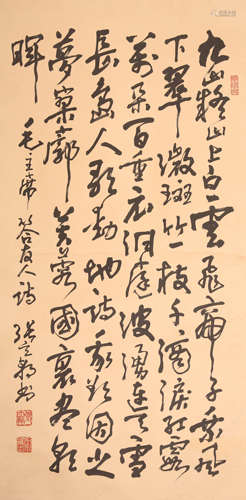 九嶷山上白雲飛帝子乘風
下翠微斑竹一枝千滴淚紅霞
萬朵百重衣洞庭波湧連天雪
長島人歌動地詩我欲因之
夢寥廓芙蓉國裏盡朝
暉
毛主席答友人詩 張立